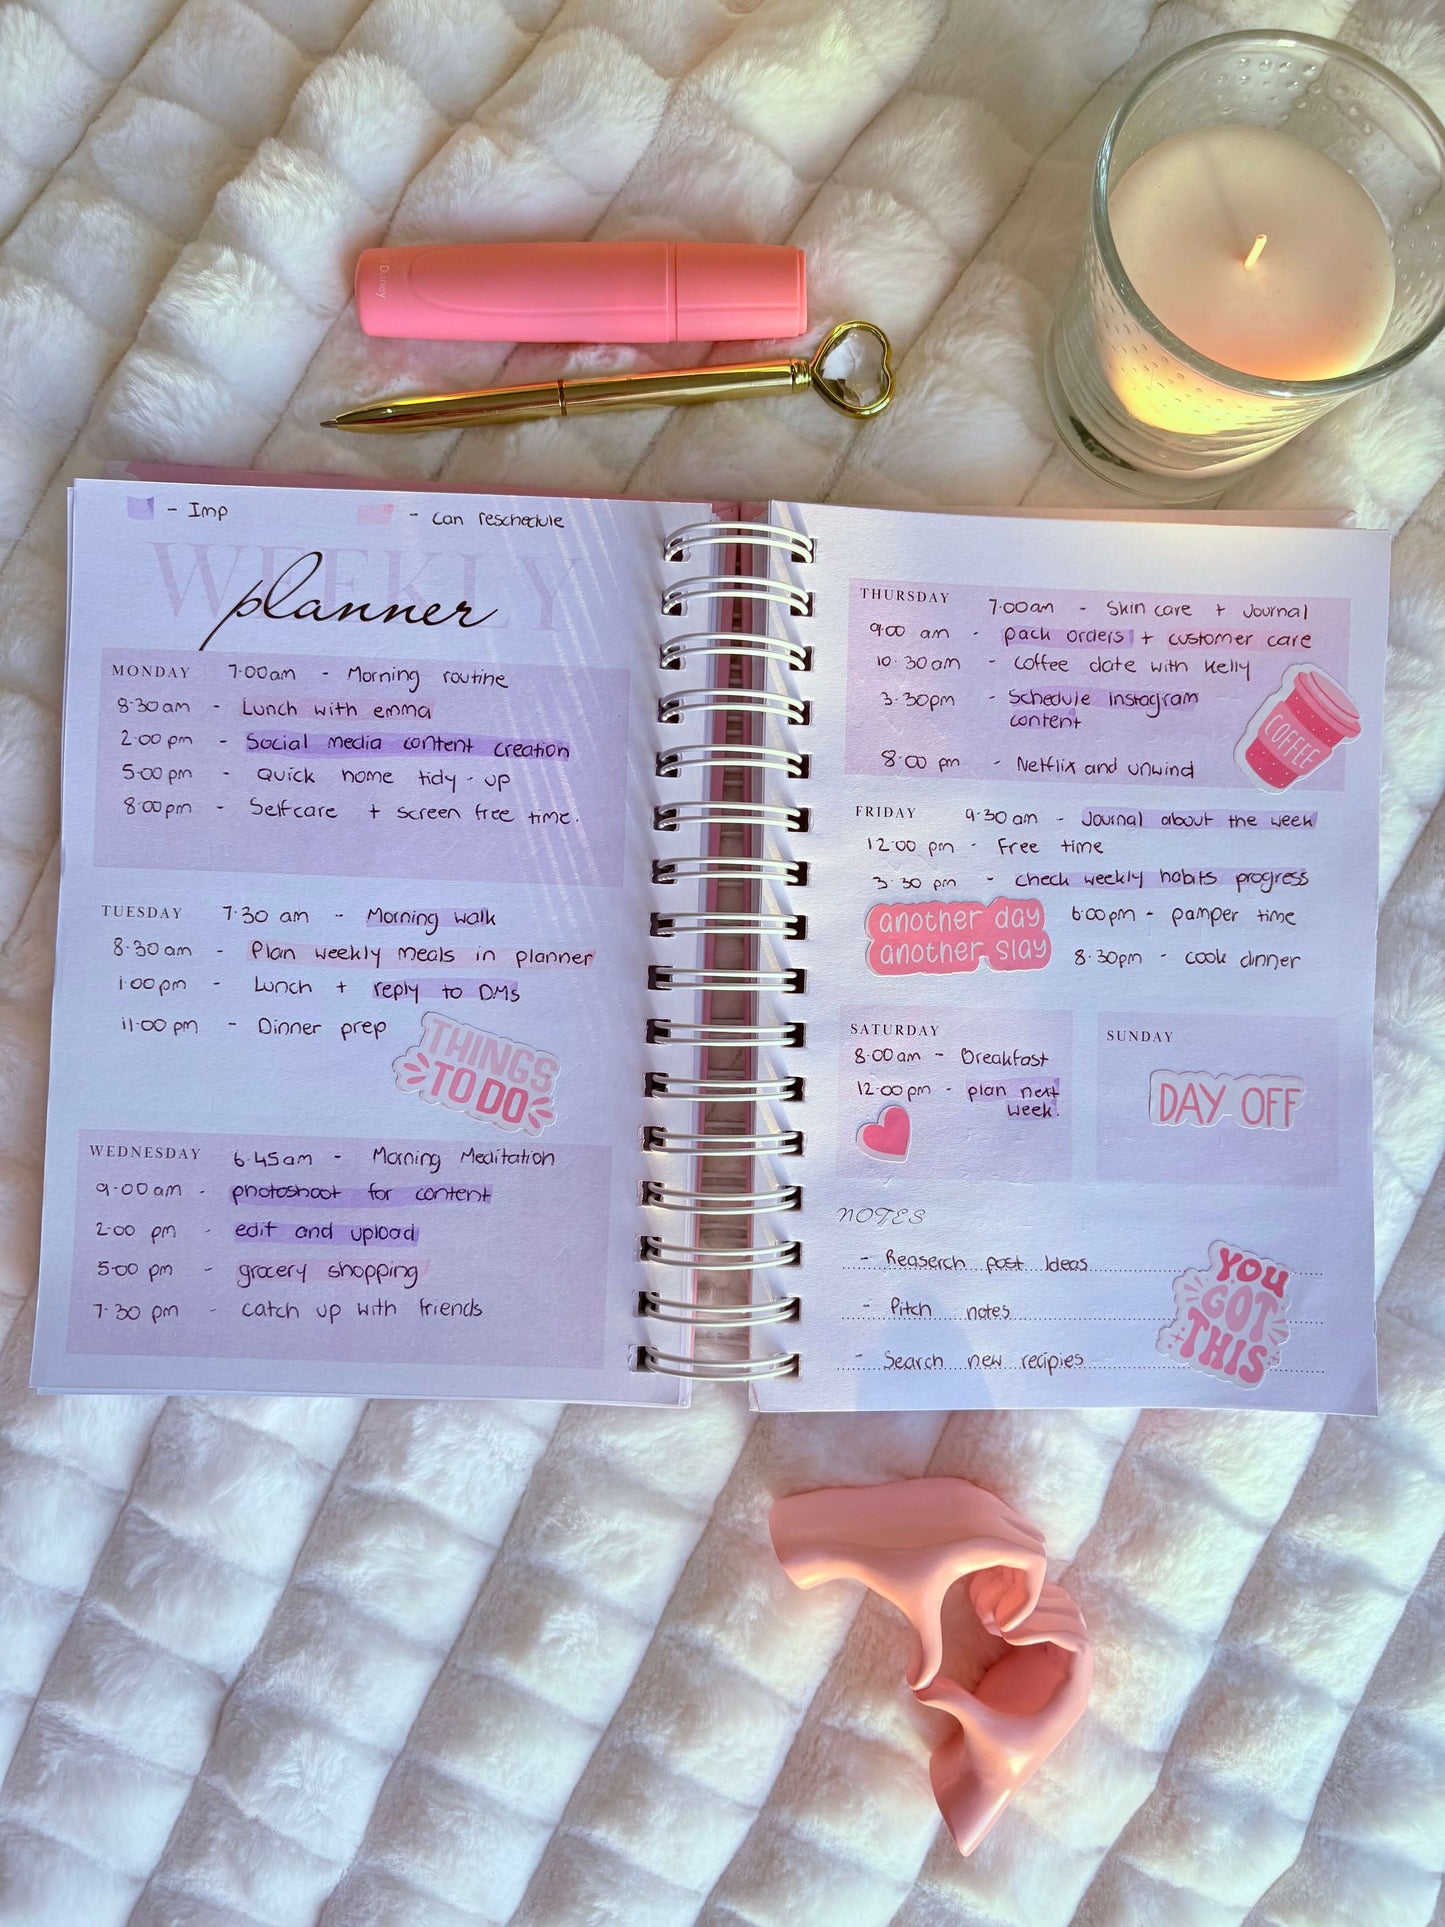 Disney
- Imp
- can reschedule
WEEKLY
planner
MONDAY 7:00am - Morning routine
8:30am - Lunch with emma
2:00 pm - Social media content creation
5:00 pm - Quick home tidy-up
8:00pm - Selfcare + screen free time.
TUESDAY 7:30 am - Morning walk
8:30am - Plan weekly meals in planner
1:00pm - Lunch + reply to DMs
11:00 pm - Dinner prep
THINGS
TO DO
WEDNESDAY 6:45am - Morning Meditation
9:00am - photoshoot for content
2:00 pm - edit and upload
5:00 pm - grocery shopping
7:30 pm - catch up with friends
THURSDAY 7:00am - Skin care + Journal
9:00 am - pack orders + customer care
10:30am - coffee date with kelly
3:30pm - Schedule Instagram
content
8:00 pm - Netflix and unwind
COFFEE
FRIDAY 9:30am - Journal about the week
12:00 pm - Free time
3:30 pm - check weekly habits progress
another day
another slay
6:00pm - pamper time
8:30pm - cook dinner
SATURDAY
8:00am - Breakfast
12:00pm - plan next
week.
SUNDAY
DAY OFF
NOTES
- Reaserch post Ideas
- Pitch notes
- Search new recipies
YOU
GOT
THIS